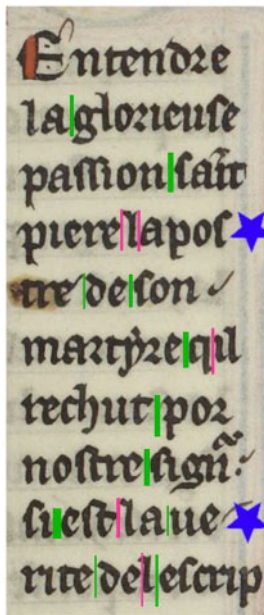 Entendre
la glorieuse
passion saĩt
piere lapos
tre de son
martẏre qil
rechut por
nostre sign̄r
si est la ue
rite del escrip